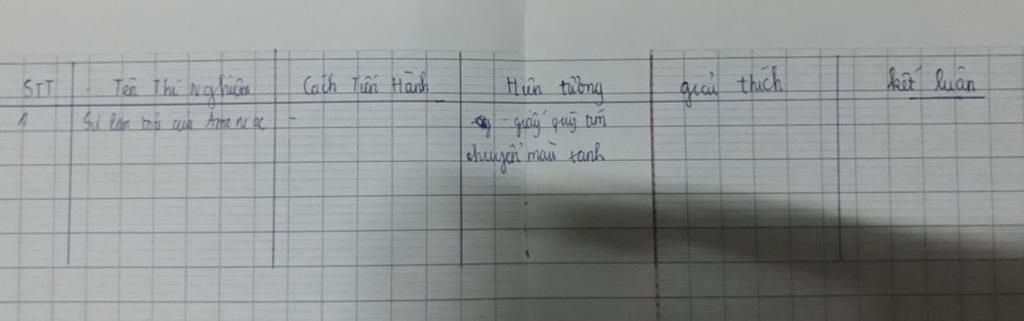 STT Tên Thí Nghiệm Cách Tiến Hành Hiện tượng giải thích kết luận
1 Sự lan toả của Amoniac - - giấy quỳ tím
chuyển màu xanh